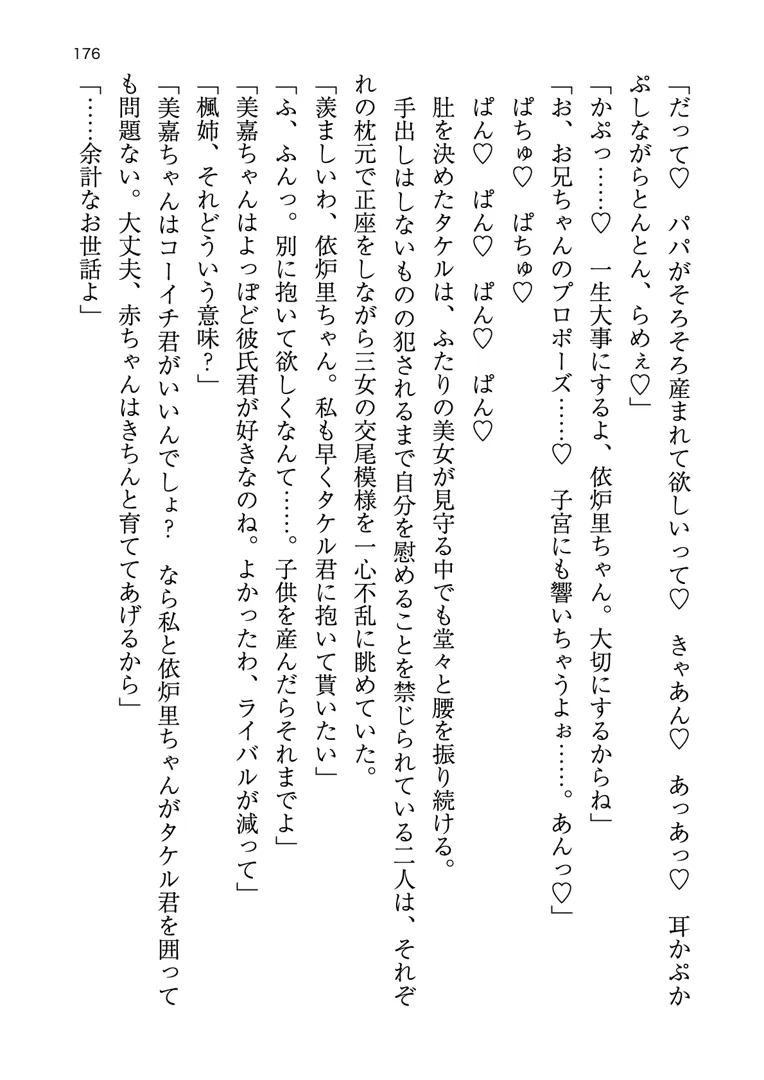 176
「だって♡　パパがそろそろ産まれて欲しいって♡　きゃあん♡　あっあっ♡　耳かぷか
ぷしながらとんとん、らめぇ♡」
「かぷっ……♡　一生大事にするよ、依炉里ちゃん。大切にするからね」
「お、お兄ちゃんのプロポーズ……♡　子宮にも響いちゃうよぉ……。あんっ♡」
ぱちゅ♡　ぱちゅ♡
ぱん♡　ぱん♡　ぱん♡　ぱん♡
肚を決めたタケルは、ふたりの美女が見守る中でも堂々と腰を振り続ける。
手出しはしないものの犯されるまで自分を慰めることを禁じられている二人は、それぞ
れの枕元で正座をしながら三女の交尾模様を一心不乱に眺めていた。
「羨ましいわ、依炉里ちゃん。私も早くタケル君に抱いて貰いたい」
「ふ、ふんっ。別に抱いて欲しくなんて……。子供を産んだらそれまでよ」
「美嘉ちゃんはよっぽど彼氏君が好きなのね。よかったわ、ライバルが減って」
「楓姉、それどういう意味?」
「美嘉ちゃんはコーイチ君がいいんでしょ?　なら私と依炉里ちゃんがタケル君を囲って
も問題ない。大丈夫、赤ちゃんはきちんと育ててあげるから」
「……余計なお世話よ」